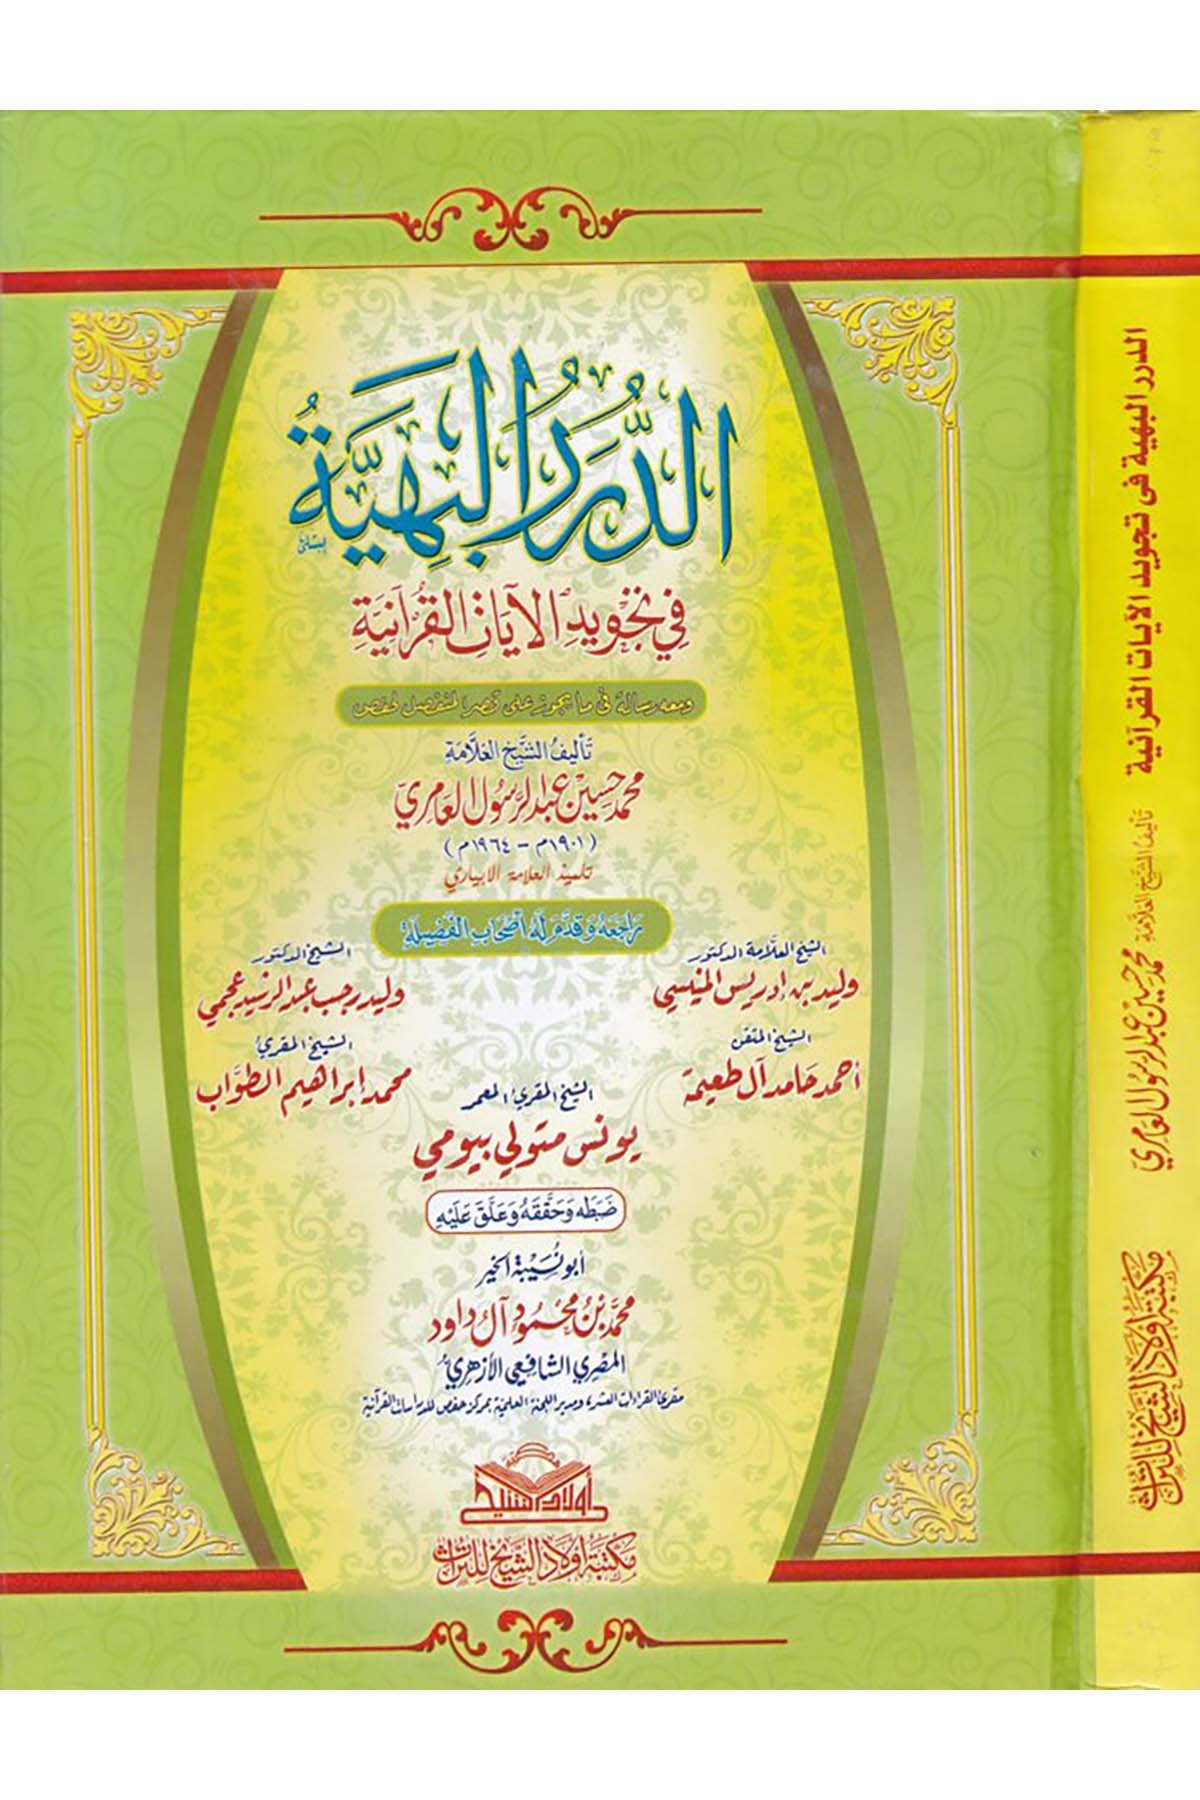 الدُّرَرُ البَهِيَّةُ
في تجويد الآيات القرآنية
ومعه رسالة في ما يجوز على قصر المنفصل لحفص
تأليف الشيخ العلامة
محمد حسين عبد الرسول العامري
(١٩٠١م - ١٩٦٤م)
تلميذ العلامة الابياري
راجعه وقدم له أصحاب الفضيلة
الشيخ العلامة الدكتور
وليد بن إدريس المنيسي
الشيخ الدكتور
وليد رجب عبد الرشيد عجمي
الشيخ المتقن
أحمد حامد آل طعيمة
الشيخ المقرئ
محمد إبراهيم الطواب
الشيخ المقرئ المعمر
يونس متولي بيومي
ضبطه وحققه وعلق عليه
أبو نسيبة الخير
محمد بن محمود آل داود
المصري الشافعي الأزهري
مقرئ القراءات العشر ومدير اللجنة العلمية بمركز حفص للدراسات القرآنية
مكتبة
أولاد الشيخ
مكتبة أولاد الشيخ للتراث
الدرر البهية فى تجويد الآيات القرآنية
تأليف الشيخ العلامة
محمد حسين عبد الرسول العامري
مكتبة أولاد الشيخ للتراث